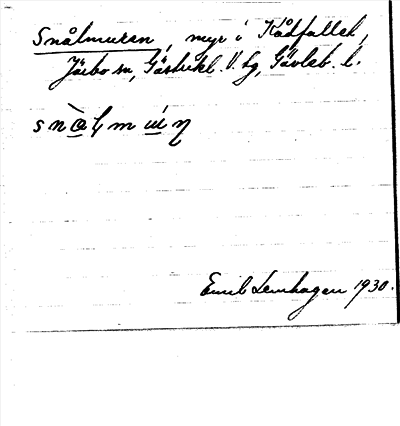 Snålmuren, myr i Kådfallet,
Järbo sn, Gästrikl. V. tg, Gävleb. l.
Emil Lenhagen 1930.